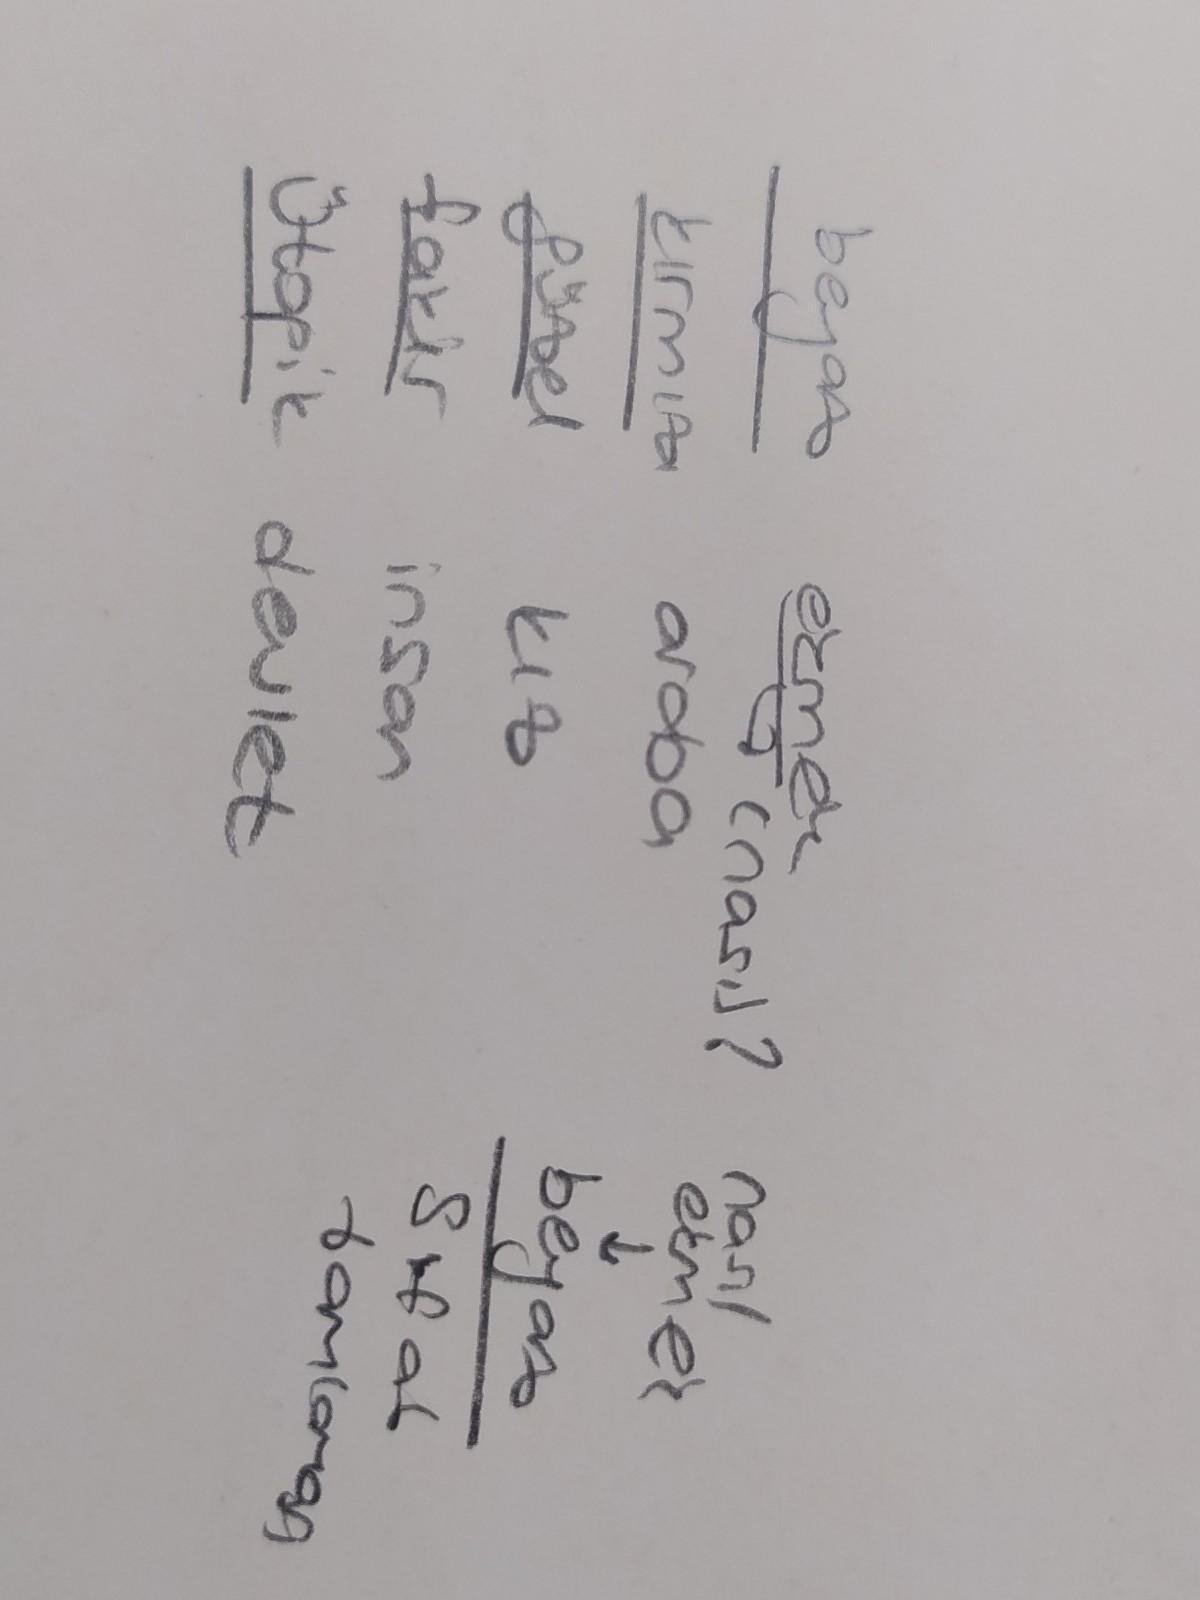 beyaz ekmek (nasıl?
kırmızı araba
güzel kız
fakir insan
Ütopik devlet
nasıl
ekmek
↓
beyaz
Sıfat
tamlaması